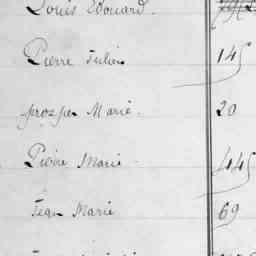 Louis Edouard.
Pierre Julien 145
prosper Marie. 20
Pierre Marie 445
Jean Marie 69